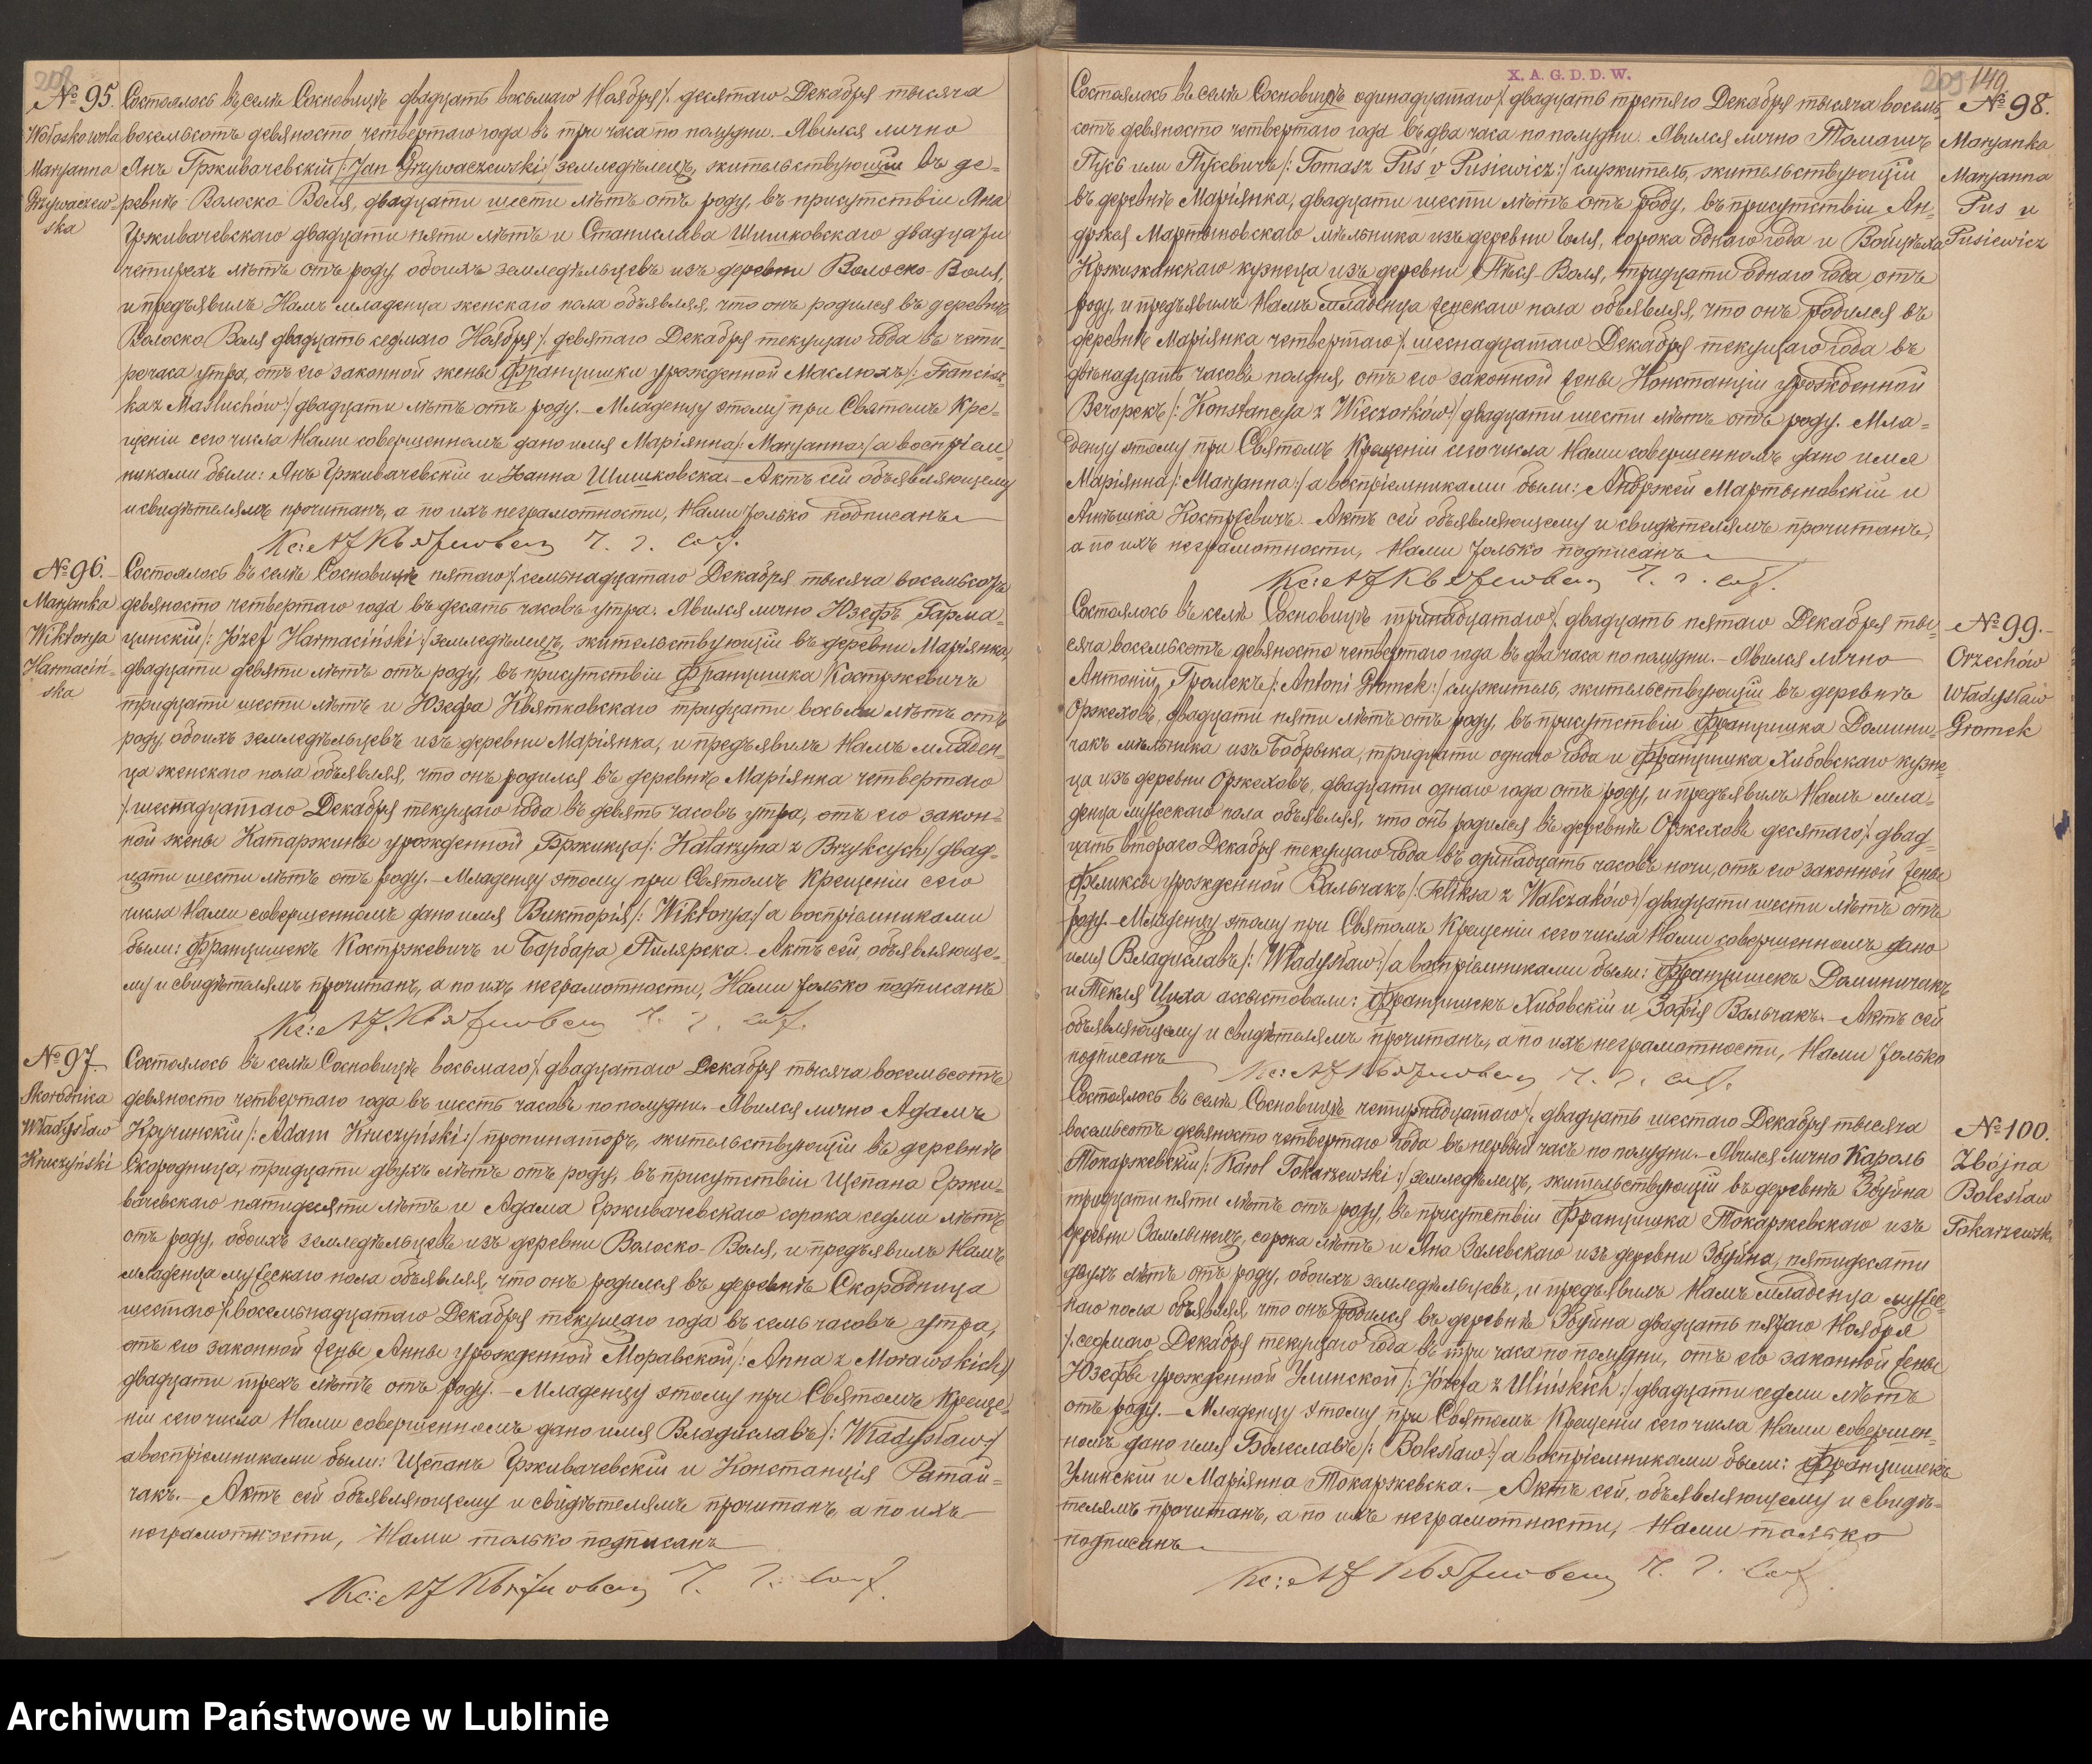 208
№ 95.
Wołoskowola
Maryanna
Grzywaczew-
ska
Состоялось въ селѣ Сосновицѣ двадцать восьмаго Ноября /. десятаго Декабря тысяча
восемьсотъ девяносто четвертаго года въ три часа по полудни. Явился лично
Янъ Грживачевскій /: Jan Grzywaczewski :/ земледѣлецъ, жительствующій въ де-
ревнѣ Волоско-Воля, двадцати шести лѣтъ отъ роду, въ присутствіи Яна
Грживачевскаго двадцати пяти лѣтъ и Станислава Шишковскаго двадцати
четырехъ лѣтъ отъ роду обоихъ земледѣльцевъ изъ деревни Волоско-Воля,
и предъявилъ Намъ младенца женскаго пола объявляя, что онъ родился въ деревнѣ
Волоско Воля двадцать седмаго Ноября /. девятаго Декабря текущаго года въ четы-
ре часа утра, отъ его законной жены Францишки урожденной Маслюхъ /: Francisz-
ka z Masluchów :/ двадцати лѣтъ отъ роду. – Младенцу этому при Святомъ Кре-
щеніи сего числа Нами совершенномъ дано имя Маріянна /: Maryanna :/ а воспріем-
никами были: Янъ Грживачевскій и Іоанна Шишковска. – Актъ сей объявляющему
и свидѣтелямъ прочитанъ, а по ихъ неграмотности, Нами только подписанъ
№ 96.
Maryanka
Wiktorya
Harmaciń-
ska
Состоялось въ селѣ Сосновицѣ пятаго /. семьнадцатаго Декабря тысяча восемьсотъ
девяносто четвертаго года въ десять часовъ утра. Явился лично Юзефъ Гарма-
цинскій /: Józef Harmaciński :/ земледѣлецъ, жительствующій въ деревни Маріянка,
двадцати девяти лѣтъ отъ роду, въ присутствіи Францишка Костржевичъ
тридцати шести лѣтъ и Юзефа Квятковскаго тридцати восьми лѣтъ отъ
роду, обоихъ земледѣльцевъ изъ деревни Маріянка, и предъявилъ Намъ младен-
ца женскаго пола объявляя, что онъ родился въ деревнѣ Маріянка четвертаго
/. шестнадцатаго Декабря текущаго года въ девять часовъ утра, отъ его закон-
ной жены Катаржины урожденной Бржикца /: Katarzyna z Brzykcych :/ двад-
цати шести лѣтъ отъ роду. – Младенцу этому при Святомъ Крещеніи сего
числа Нами совершенномъ дано имя Викторія /: Wiktorya :/ а воспріемниками
были: Францишекъ Костржевичъ и Барбара Пилярска. Актъ сей, объявляюще-
му и свидѣтелямъ прочитанъ, а по ихъ неграмотности, Нами только подписанъ
№ 97
Skorodnica
Władysław
Kruczyński
Состоялось въ селѣ Сосновицѣ восьмаго /. двадцатаго Декабря тысяча восемьсотъ
девяносто четвертаго года въ шесть часовъ по полудни. Явился лично Адамъ
Кручинскій /: Adam Kruczyński :/ пропинаторъ, жительствующій въ деревнѣ
Скородница, тридцати двухъ лѣтъ отъ роду, въ присутствіи Щепана Гржи-
вачевскаго пятидесяти лѣтъ и Адама Грживачевскаго сорока седми лѣтъ
отъ роду, обоихъ земледѣльцевъ изъ деревни Волоско-Воля, и предъявилъ Намъ
младенца мужескаго пола объявляя, что онъ родился въ деревнѣ Скородница
шестаго /. восемьнадцатаго Декабря текущаго года въ семь часовъ утра,
отъ его законной жены Анны урожденной Моравской /: Anna z Morawskich :/
двадцати трехъ лѣтъ отъ роду. – Младенцу этому при Святомъ Креще-
ніи сего числа Нами совершенномъ дано имя Владиславъ /: Władysław :/
а воспріемниками были: Щепанъ Грживачевскій и Констанція Ратай-
чакъ. – Актъ сей объявляющему и свидѣтелямъ прочитанъ, а по ихъ
неграмотности, Нами только подписанъ
X. A. G. D. D. W.
209 149
№ 98.
Maryanka
Maryanna
Pus v
Pusiewicz
Состоялось въ селѣ Сосновицѣ одинадцатаго /. двадцать третяго Декабря тысяча восемь-
сотъ девяносто четвертаго года въ два часа по полудни. Явился лично Томашъ
Пусь или Пусевичъ /: Tomasz Puś v Pusiewicz :/ служитель, жительствующій
въ деревнѣ Маріянка, двадцати шести лѣтъ отъ роду, въ присутствіи Ан-
држея Мартыновскаго мѣльника изъ деревни Голя, сорока однаго года и Войцѣха
Кржижанскаго кузнеца изъ деревни Пѣся-Воля, тридцати однаго года отъ
роду, и предъявилъ Намъ младенца женскаго пола объявляя, что онъ родился въ
деревнѣ Маріянка четвертаго /. шеснадцатаго Декабря текущаго года въ
двѣнадцать часовъ полдня, отъ его законной жены Констанціи урожденной
Вечорекъ /: Konstancya z Wieczorków :/ двадцати шести лѣтъ отъ роду. Мла-
денцу этому при Святомъ Крещеніи сего числа Нами совершенномъ дано имя
Маріянна /: Maryanna :/ а воспріемниками были: Андржей Мартыновскій и
Агнѣшка Костржевичъ. Актъ сей объявляющему и свидѣтелямъ прочитанъ,
а по ихъ неграмотности, Нами только подписанъ
№ 99.
Orzechów
Władysław
Gromek
Состоялось въ селѣ Сосновицѣ тринадцатаго /. двадцать пятаго Декабря ты-
сяча восемьсотъ девяносто четвертаго года въ два часа по полудни. – Явился лично
Антоній Громекъ /: Antoni Gromek :/ служитель, жительствующій въ деревнѣ
Оржеховъ, двадцати пяти лѣтъ отъ роду, въ присутствіи Францишка Домини-
чакъ мѣльника изъ Бобрыка, тридцати однаго года и Францишка Хибовскаго кузне-
ца изъ деревни Оржеховъ, двадцати однаго года отъ роду, и предъявилъ Намъ мла-
денца мужескаго пола объявляя, что онъ родился въ деревнѣ Оржеховъ десятаго /. двад-
цать втораго Декабря текущаго года въ одинадцать часовъ ночи, отъ его законной жены
Феликсы урожденной Вальчакъ /: Feliksa z Walczaków :/ двадцати шести лѣтъ отъ
роду. – Младенцу этому при Святомъ Крещеніи сего числа Нами совершенномъ дано
имя Владиславъ /: Władysław :/ а воспріемниками были: Францишекъ Доминичакъ
и Текля Цуха ассыстовали: Францишекъ Хибовскій и Зофія Вальчакъ. – Актъ сей
объявляющему и свидѣтелямъ прочитанъ, а по ихъ неграмотности, Нами только
подписанъ
№ 100.
Zbójna
Bolesław
Tokarzewsk.
Состоялось въ селѣ Сосновицѣ четырнадцатаго /. двадцать шестаго Декабря тысяча
восемьсотъ девяносто четвертаго года въ первый часъ по полудни. – Явился лично Кароль
Токаржевскій /: Karol Tokarzewski :/ земледѣлецъ, жительствующій въ деревнѣ Збуйна
тридцати пяти лѣтъ отъ роду, въ присутствіи Францишка Токаржевскаго изъ
деревни Замлынецъ, сорока лѣтъ и Яна Залевскаго изъ деревни Збуйна, пятидесяти
двухъ лѣтъ отъ роду, обоихъ земледѣльцевъ, и предъявилъ Намъ младенца мужес-
каго пола объявляя, что онъ родился въ деревнѣ Збуйна двадцать пятаго Ноября
/. седмаго Декабря текущаго года въ три часа по полудни, отъ его законной жены
Юзефы урожденной Улинской /: Józefa z Ulińskich :/ двадцати седми лѣтъ
отъ роду. – Младенцу этому при Святомъ Крещеніи сего числа Нами совершен-
номъ дано имя Болеславъ /: Bolesław :/ а воспріемниками были: Францишекъ
Улинскій и Маріянна Токаржевска. – Актъ сей, объявляющему и свидѣ-
телямъ прочитанъ, а по ихъ неграмотности, Нами только
подписанъ
Archiwum Państwowe w Lublinie